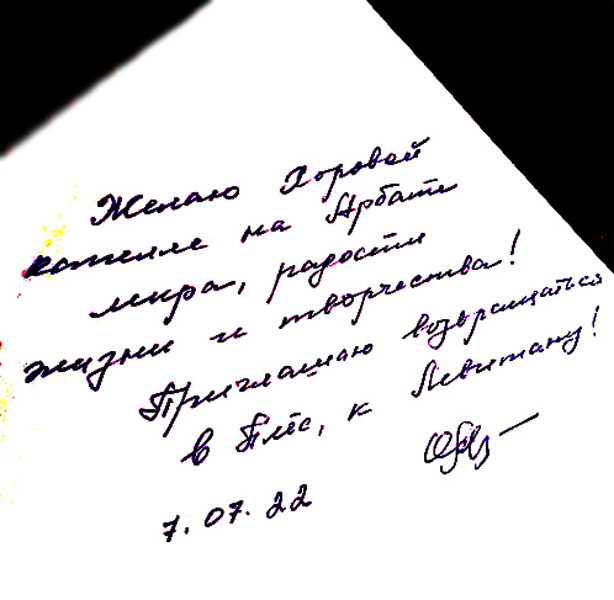 Желаю Хоровой
капелле на Арбате
мира, радости
жизни и творчества!
Приглашаю возвращаться
в Плёс, к Левитану!
7.07.22